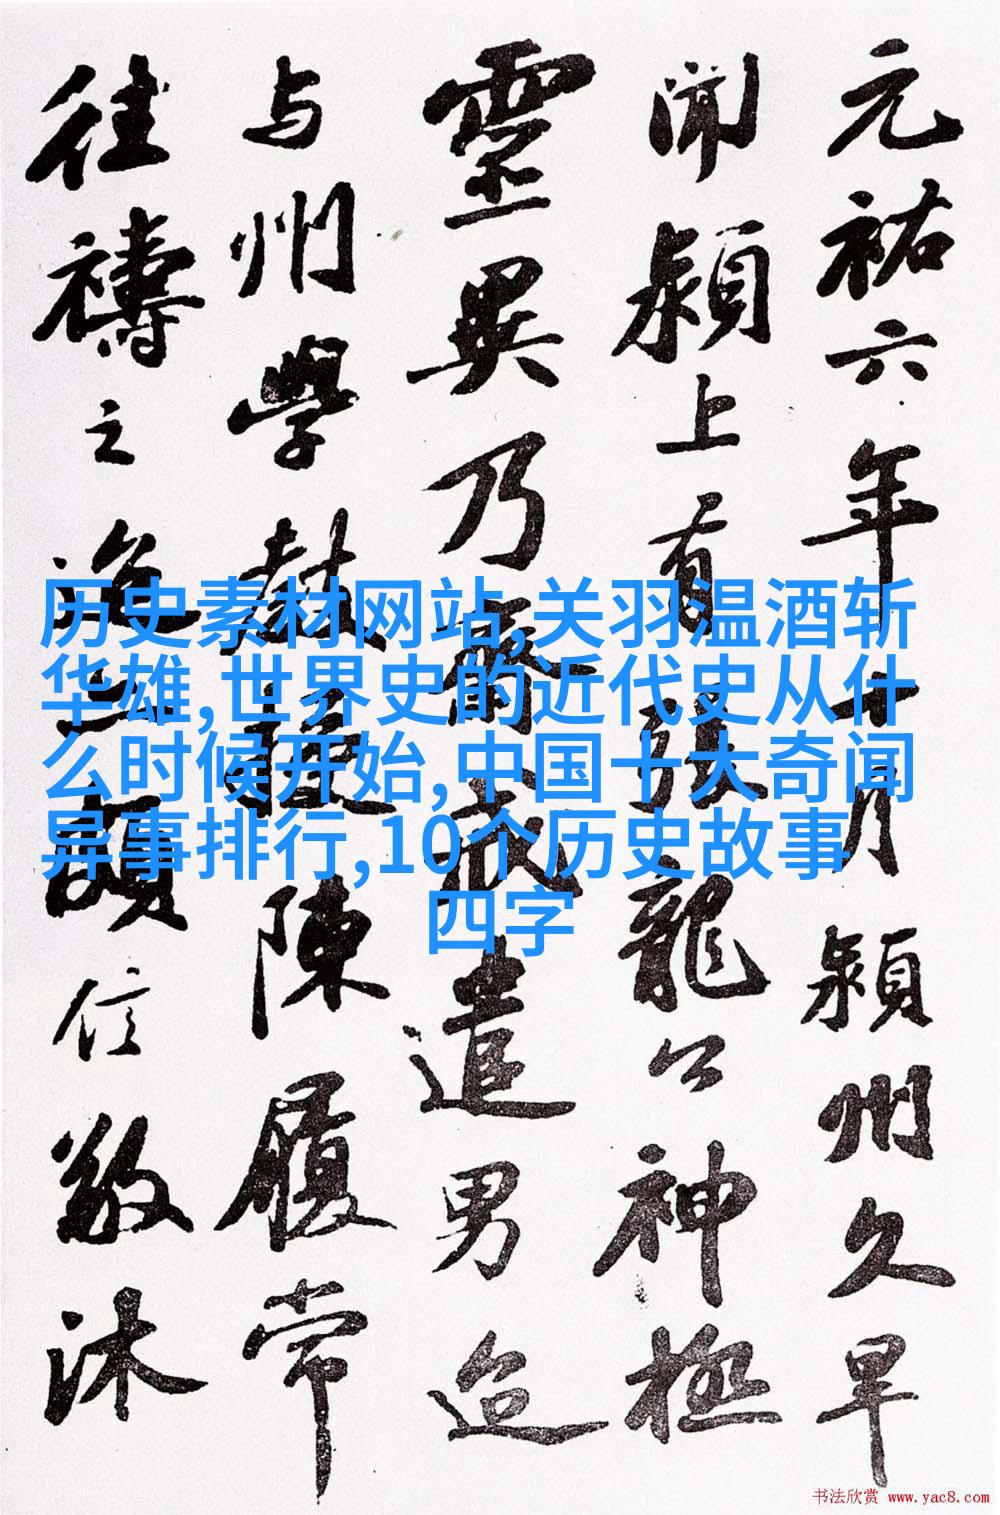 元祐六年十月潁州久旱
聞潁上有張龍公神極
靈異乃齋戒遣男迨
与州學教授陳履常
往禱之迨亦頗信敬沐
历史素材网站,关羽温酒斩
华雄,世界史的近代史从什
么时候开始,中国十大奇闻
异事排行,10个历史故事
四字
书法欣赏 www.yac8.com